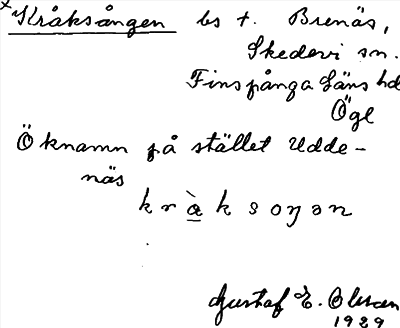 × Kråksången bs t. Brenäs,
Skedevi sn.
Finspånga läns hd
Ögl
Öknamn på stället Udde-
näs
kràksoŋən
Gustaf E. Olsson
1929